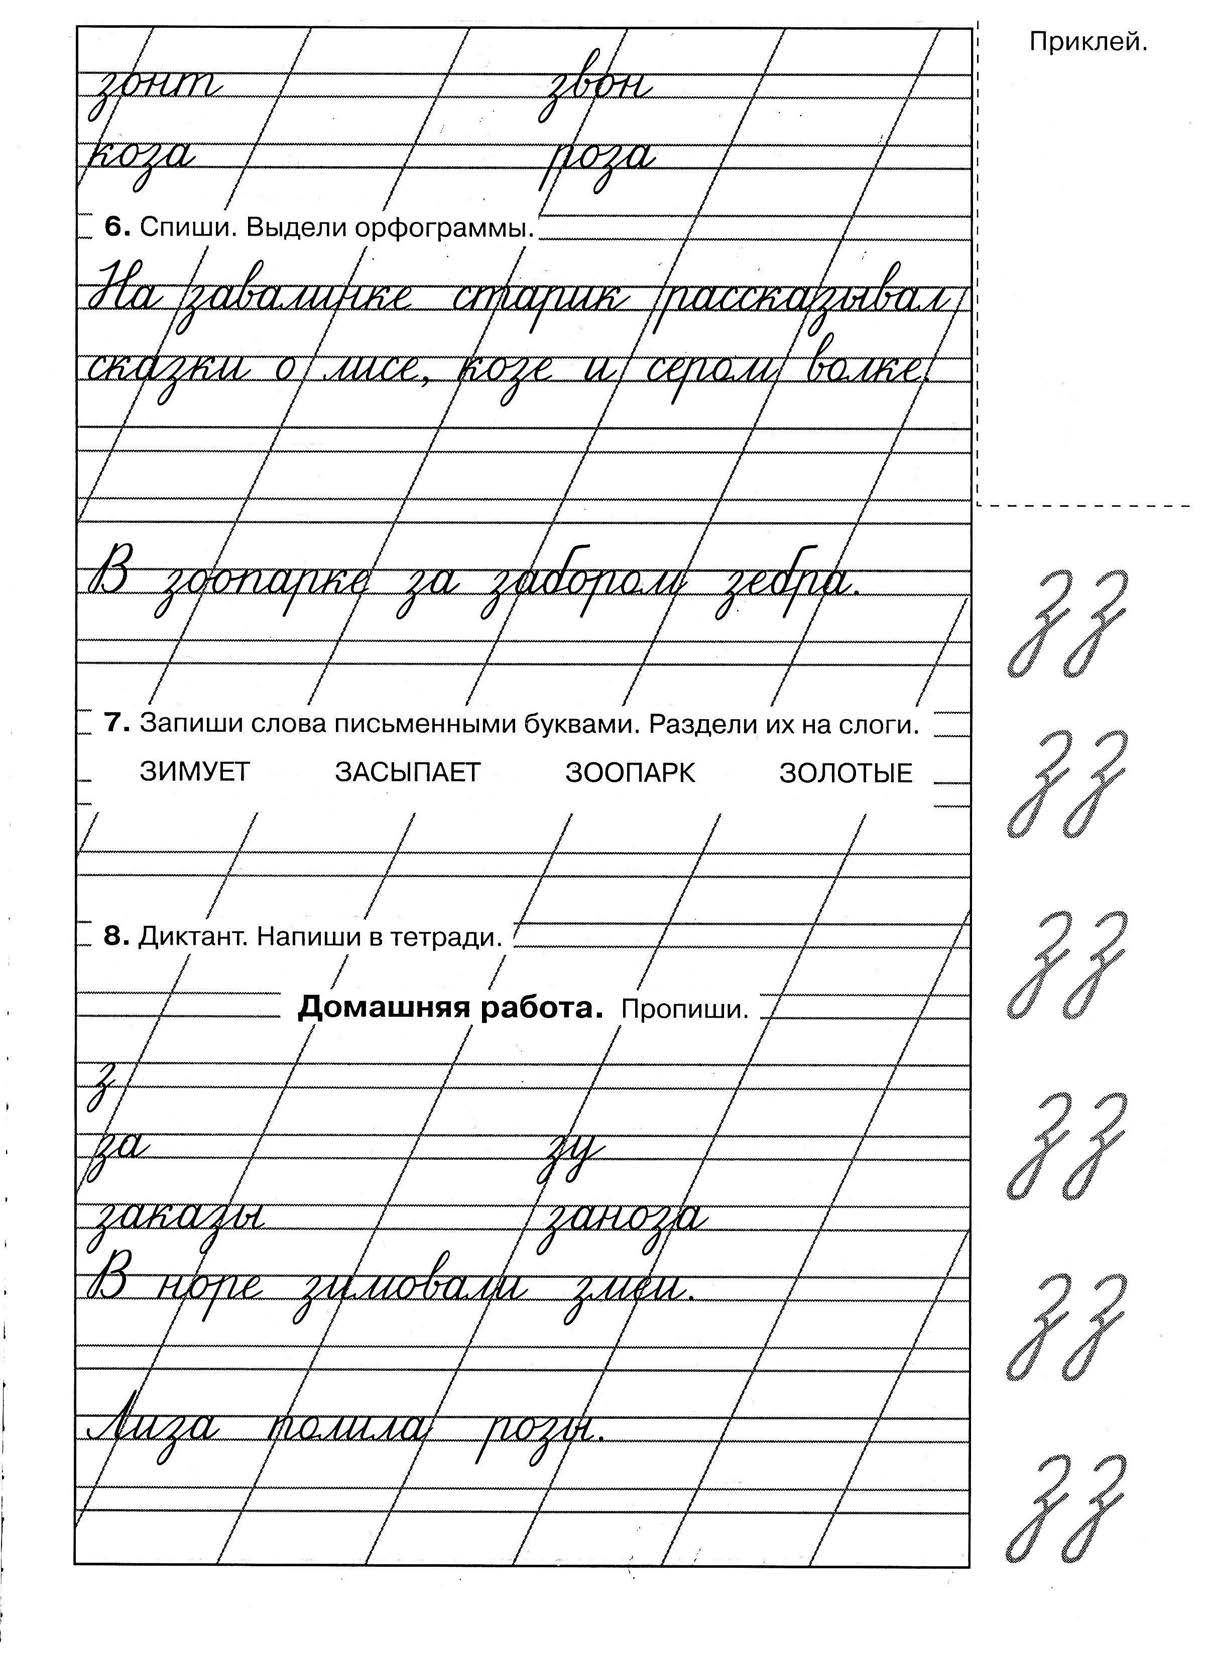 Приклей.
зонт звон
коза роза
6. Спиши. Выдели орфограммы.
На завалинке старик рассказывал
сказки о лисе, козе и сером волке.
В зоопарке за забором зебра.
з з
7. Запиши слова письменными буквами. Раздели их на слоги.
ЗИМУЕТ ЗАСЫПАЕТ ЗООПАРК ЗОЛОТЫЕ
з з
8. Диктант. Напиши в тетради.
з з
Домашняя работа. Пропиши.
з
за зу
з з
заказы заноза
В норе зимовали змеи.
з з
Лиза полила розы.
з з